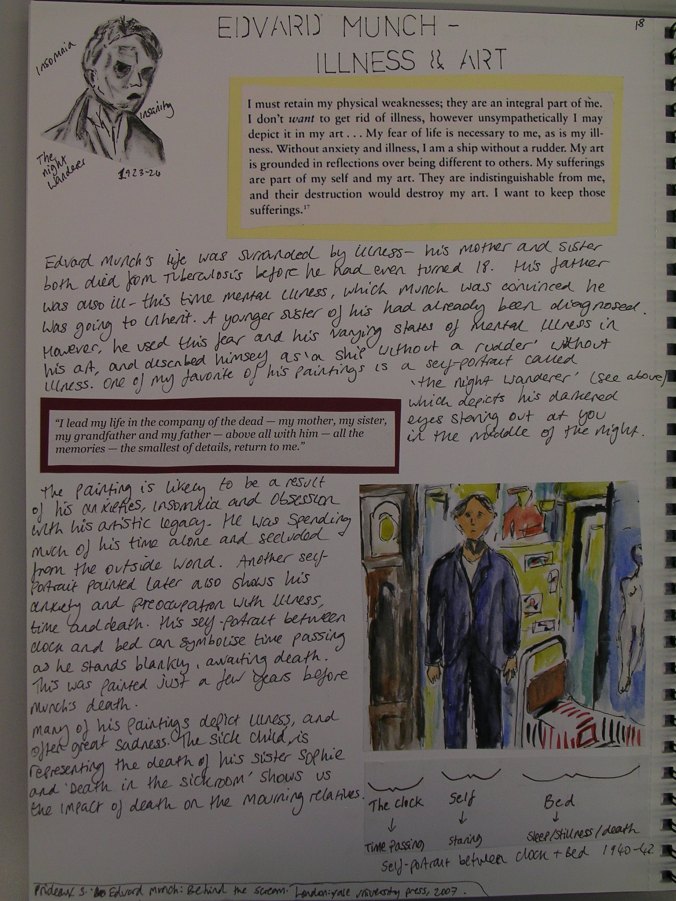 18
EDVARD MUNCH -
ILLNESS & ART
Insomnia
Insanity
The
night
Wanderer
1923-24
I must retain my physical weaknesses; they are an integral part of me.
I don't want to get rid of illness, however unsympathetically I may
depict it in my art . . . My fear of life is necessary to me, as is my ill-
ness. Without anxiety and illness, I am a ship without a rudder. My art
is grounded in reflections over being different to others. My sufferings
are part of my self and my art. They are indistinguishable from me,
and their destruction would destroy my art. I want to keep those
sufferings.17
Edvard Munch's life was surrounded by illness - his mother and sister
both died from Tuberculosis before he had even turned 18. His father
was also ill - this time mental illness, which Munch was convinced he
was going to inherit. A younger sister of his had already been diagnosed.
However, he used this fear and his varying states of mental illness in
his art, and described himself as 'a ship without a rudder' without
illness. One of my favorite of his paintings is a self-portrait called
'the night wanderer' (see above)
which depicts his darkened
eyes staring out at you
in the middle of the night.
"I lead my life in the company of the dead — my mother, my sister,
my grandfather and my father — above all with him — all the
memories — the smallest of details, return to me."
The painting is likely to be a result
of his anxieties, insomnia and obsession
with his artistic legacy. He was spending
much of his time alone and secluded
from the outside world. Another self-
portrait painted later also shows his
anxiety and preoccupation with illness,
time and death. His self-portrait between
clock and bed can symbolise time passing
as he stands blankly, awaiting death.
This was painted just a few years before
Munch's death.
Many of his paintings depict illness, and
often great sadness. The sick child, is
representing the death of his sister Sophie
and 'Death in the sickroom' shows us
the impact of death on the mourning relatives.
The clock
Self
Bed
Time passing
staring
Sleep/stillness/death
Self-portrait between clock + Bed 1940-42
Prideaux S. Edvard Munch: Behind the scream. London: Yale university press, 2007.